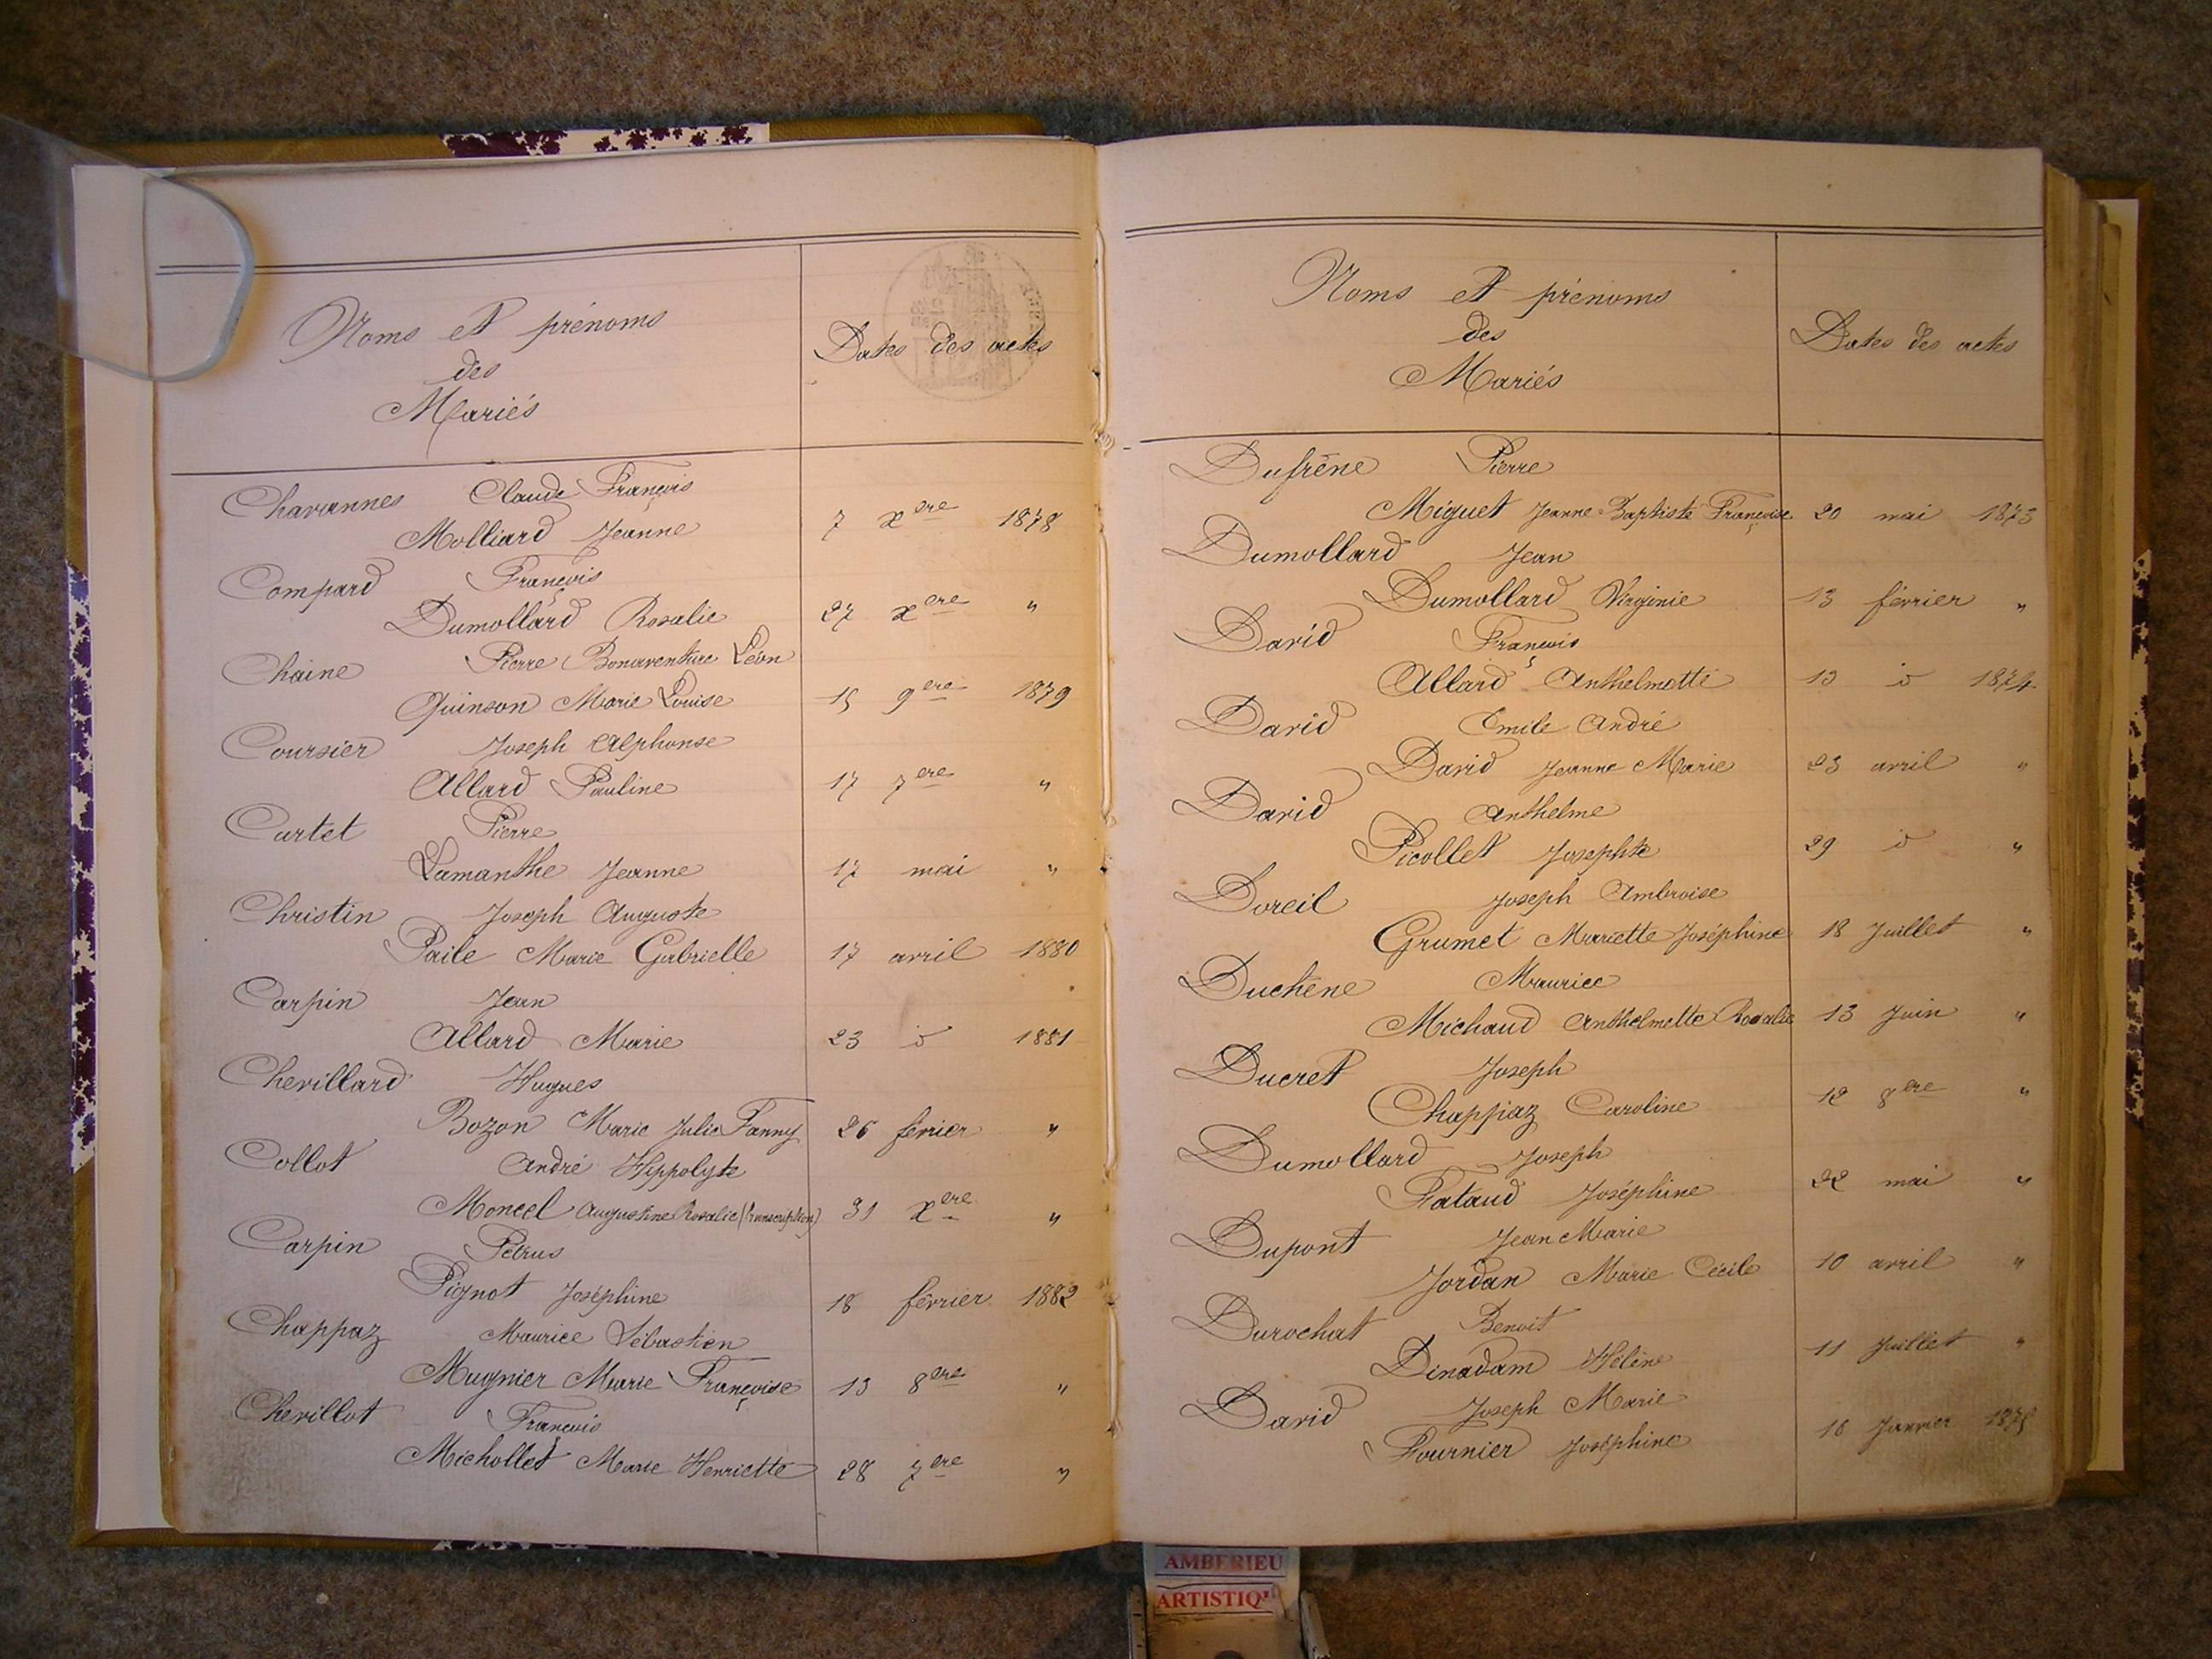 Noms et prénoms
des
Mariés
Dates des actes
Chavannes Claude François
Molliard Jeanne 7 xere 1878
Compard François
Dumollard Rosalie 27 xere "
Chaine Pierre Bonaventure Léon
Quinson Marie Louise 15 9ere 1879
Coursier Joseph Alphonse
Allard Pauline 17 7ere "
Curtet Pierre
Lamanthe Jeanne 17 mai "
Christin Joseph Auguste
Paile Marie Gabrielle 17 avril 1880
Carpin Jean
Allard Marie 23 d 1881
Chevillard Hugues
Bozon Marie Julie Fanny 26 février "
Collot André Hippolyte
Moncel Augustine Rosalie (transcription) 31 xere "
Carpin Pétrus
Pignot Joséphine 18 février 1882
Chappaz Maurice Sébastien
Mugnier Marie Françoise 13 8ere "
Chevillot François
Michollet Marie Henriette 28 7ere "
Noms et prénoms
des
Mariés
Dates des actes
Dufrêne Pierre
Miguet Jeanne Baptiste Françoise 20 mai 1873
Dumollard Jean
Dumollard Virginie 13 février "
David François
Allard Anthelmette 13 d 1874
David Emile André
David Jeanne Marie 23 avril "
David Anthelme
Picollet Josephte 29 d "
Doreil Joseph Ambroise
Grumet Mariette Joséphine 18 Juillet "
Duchêne Maurice
Michaud Anthelmette Rosalie 13 Juin "
Ducret Joseph
Chappiaz Caroline 12 8ere "
Dumollard Joseph
Pataud Joséphine 22 mai "
Dupont Jean Marie
Jordan Marie Cécile 10 avril "
Durochat Benoit
Dinadam Hélène 11 Juillet "
David Joseph Marie
Fournier Joséphine 16 Janvier
AMBERIEU
ARTISTIQ